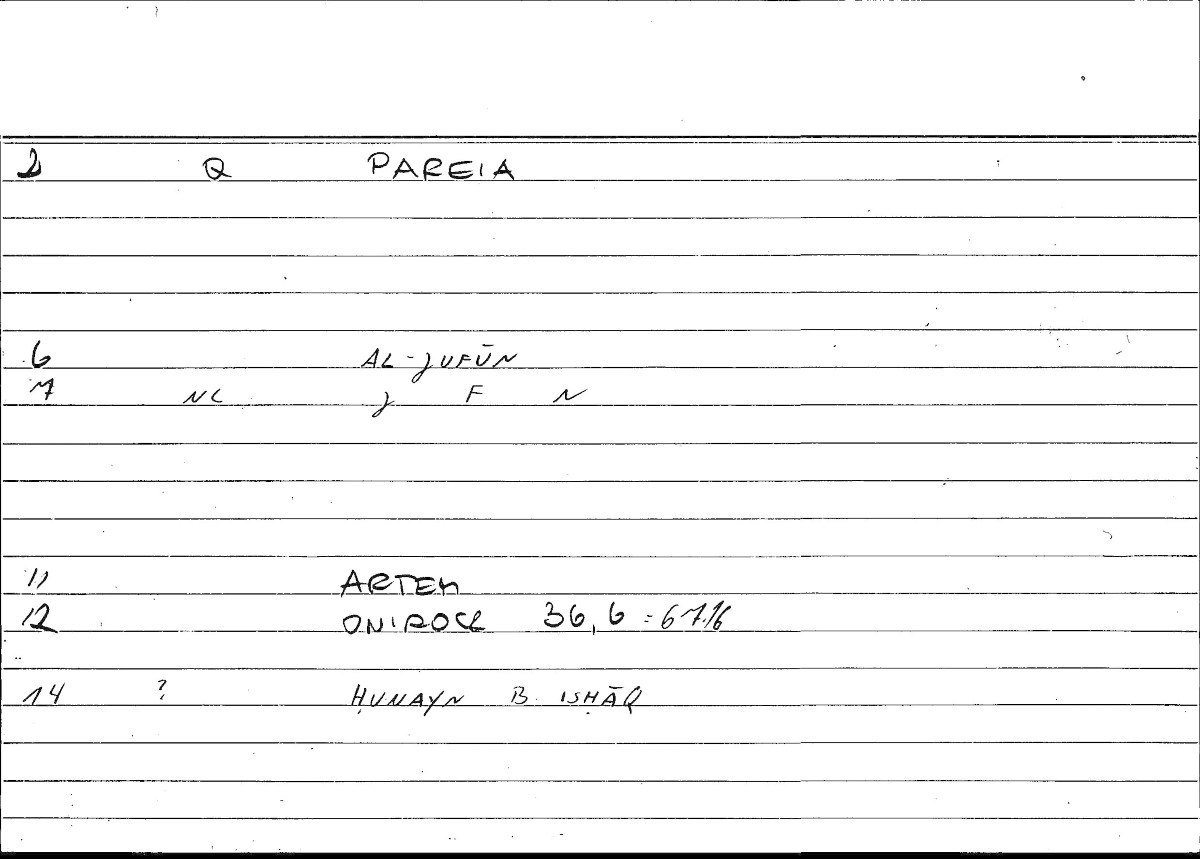 2 Q PAREIA
6 AL-JUFŪN
7 NC J F N
11 ARTEM
12 ONIROCR 36,6 = 67.16
14 ? ḤUNAYN B. ISḤĀQ